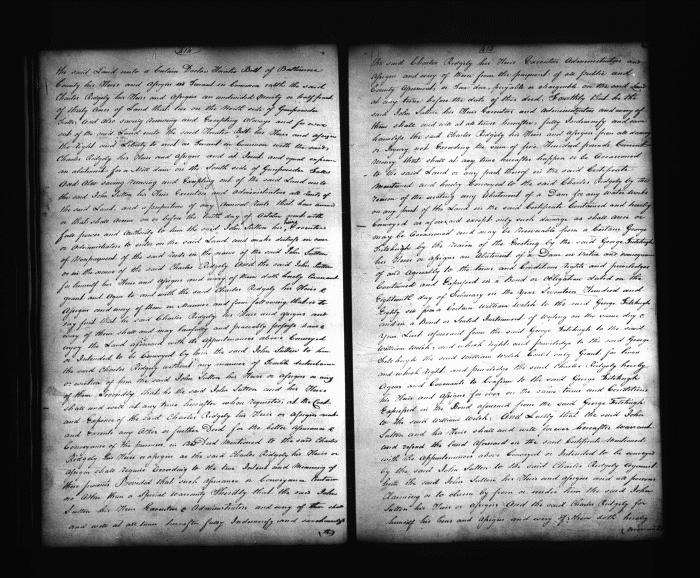 the said Land unto a Certain Doctor Thomas Bill of Baltimore
County his Heirs and Assigns as Tenant in Common with the said
Charles Ridgely his Heirs and Assigns an undivided Moiety or half part
of Acres of Land that lies on the North side of Gunpowder
Falls. And also saving reserving and Excepting Always and for ever
out of the said Land unto the said Thomas Bill his Heirs and Assigns
the right and Liberty to and as Tenant in Common with the said
Charles Ridgely his Heirs and Assigns and at Joint and equal expence
an abutment for a Mill Dam on the South side of Gunpowder Falls
And Also saving reserving and Excepting out of the said Land unto
the said John Sutton his Heirs Executors and Administrators all Rents of
the said Land and a proportion of any Annual Rents that have arised
or that shall arise on or before the tenth day of October next with
full power and authority to him the said John Sutton his Executors
or Administrators to enter on the said Land and make distress in case
of Nonpayment of the said Rents in the name of the said John Sutton
or in the name of the said Charles Ridgely And the said John Sutton
for himself his Heirs and Assigns and every of them doth hereby Covenant
grant and Agree to and with the said Charles Ridgely his Heirs &
Assigns and every of them in Manner and form following that is to
say first that he said Charles Ridgely his Heirs and assigns and
every of them shall and may lawfully and peaceably possess and
enjoy the Land aforesaid with its Appurtenances above Conveyed
or Intended to be Conveyed by him the said John Sutton to him
the said Charles Ridgely without any manner of disturbance
or eviction of him the said John Sutton his Heirs or Assigns or any
of them Secondly that he the said John Sutton and his Heirs
shall and will at any time hereafter when requested at the Cost
and Expence of the said Charles Ridgely his Heirs or Assigns make
and Execute any other or further Deed for the better Assurance &
Conveyance of the premises in this Deed Mentioned to the said Charles
Ridgely his Heirs or Assigns as the said Charles Ridgely his Heirs or
Assigns shall require According to the true Intent and Meaning of
these presents Provided that such Assurance or Conveyance Contain
no other than a Special warranty Thirdly that the said John
Sutton his Heirs Executors & Administrators and every of them shall
and will at all times hereafter fully Indemnify and save harmless
the said Charles Ridgely his Heirs Executors Administrators and
Assigns and every of them from the payment of all public and
County Assessments or Tax due payable or chargeable on the said Land
at any time before the date of this deed. Fourthly that he the
said John Sutton his Heirs Executors and Administrators and every of
them shall and will at all times hereafter fully Indemnify and save
harmless the said Charles Ridgely his Heirs and Assigns from all damage
or Injury not Exceeding the sum of five Thousand pounds Current
Money that shall at any time hereafter happen or be Occasioned
to the said Land or any part thereof in the said Certificate
Mentioned and hereby Conveyed to the said Charles Ridgely by the
reason of the erecting any Abutment of a Dam for any water works
on any part of the Land in the said Certificate Contained and hereby
Conveyed as aforesaid except only such damage as shall arise or
may be Occasioned and may be recoverable from a Certain George
Fitzhugh by the reason of the Erecting by the said George Fitzhugh
his Heirs or Assigns an Abutment of a Dam
of and Agreeably to the terms and Conditions rights and priviledges
Contained and Expressed in a Bond or Obligation dated on the
Eighteenth day of February in the year Seventeen Hundred and
Eighty six from a Certain William Welsh to the said George Fitzhugh
and in a Bond or Sealed Instrument of writing on the same day &
year Last aforesaid from the said George Fitzhugh to the said
William Welsh and which right and priviledge to the said George
Fitzhugh the said William Welsh Could only Grant for lives
and which right and priviledge the said Charles Ridgely hereby
Agrees and Covenants to Confirm to the said George Fitzhugh
his Heirs and Assigns for ever on the same terms and Conditions
Expressed in the Bond aforesaid from the said George Fitzhugh
to the said William Welsh. And Lastly that the said John
Sutton and his Heirs shall and will for ever hereafter warrant
and defend the Land aforesaid in the said Certificate Mentioned
with the Appurtenances above Conveyed or Intended to be conveyed
by the said John Sutton to the said Charles Ridgely Against
him the said John Sutton his Heirs and Assigns and all persons
Claiming or to claim by from or under him the said John
Sutton his Heirs or Assigns And the said Charles Ridgely for
himself his Heirs and Assigns and every of them doth hereby